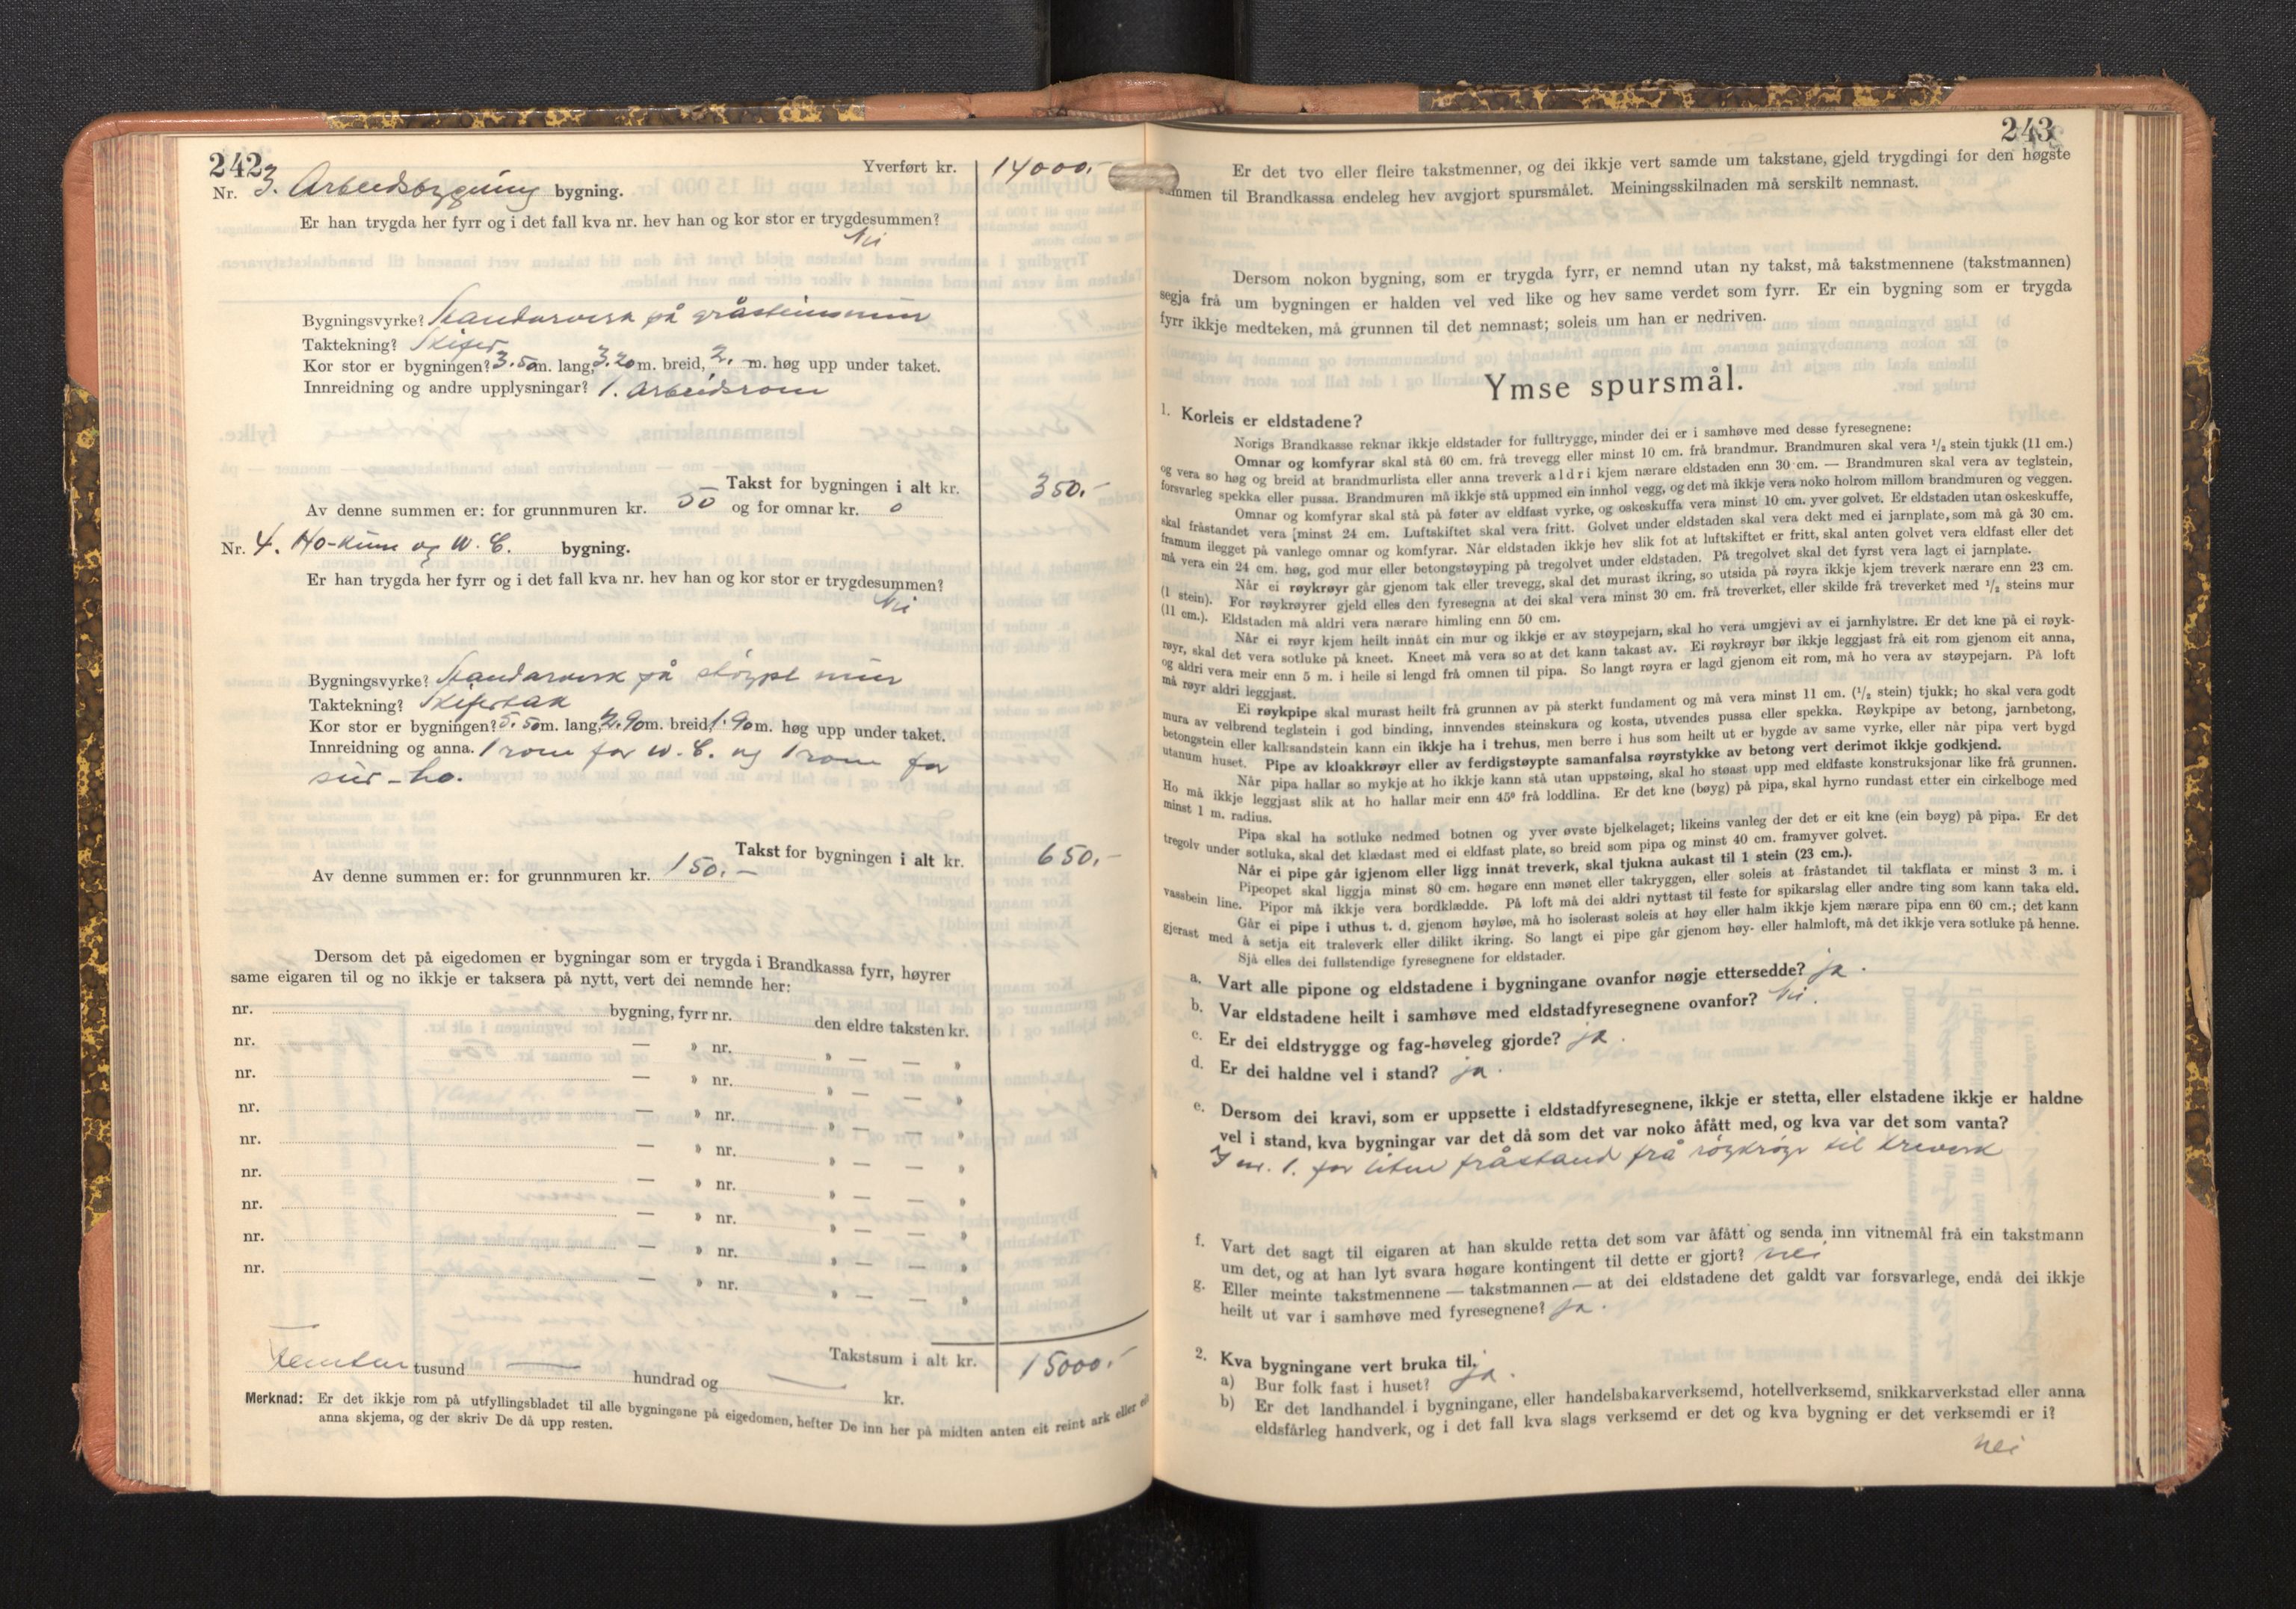 242
Yverført kr. 14000.-
Nr. 3. Arbeidsbygning bygning.
Er han trygda her fyrr og i det fall kva nr. hev han og kor stor er trygdesummen?
Nei
Bygningsvyrke? Standarverk på gråsteinsmur
Taktekning? Skifer
Kor stor er bygningen? 3.50 m. lang, 3.20 m. breid, 2.- m. høg upp under taket.
Innreidning og andre upplysningar? 1. Arbeidsrom
Takst for bygningen i alt kr. 350.-
Av denne summen er: for grunnmuren kr. 50 og for omnar kr. 0
Nr. 4. Ho-kum og W.C. bygning.
Er han trygda her fyrr og i det fall kva nr. hev han og kor stor er trygdesummen?
Nei
Bygningsvyrke? Standarverk på støypt mur
Taktekning? Skifertak
Kor stor er bygningen? 5.50 m. lang, 2.90 m. breid, 1.90 m. høg upp under taket.
Innreidning og anna. 1 rom for W.C. og 1 rom for
sur-ho.
Takst for bygningen i alt kr. 650.-
Av denne summen er: for grunnmuren kr. 150.-
Dersom det på eigedomen er bygningar som er trygda i Brandkassa fyrr, høyrer
same eigaren til og no ikkje er taksera på nytt, vert dei nemnde her:
nr. bygning, fyrr nr. den eldre taksten kr.
nr. — » nr. » — — »
nr. — » nr. » — — »
nr. — » nr. » — — »
nr. — » nr. » — — »
nr. — » nr. » — — »
nr. — » nr. » — — »
nr. — » nr. » — — »
nr. — » nr. » — — »
Takstsum i alt kr. 15000.-
Femtan tusund — hundrad og — kr.
Merknad: Er det ikkje rom på utfyllingsbladet til alle bygningane på eigedomen, hefter De inn her på midten anten eit reint ark eller eit
anna skjema, og der skriv De då upp resten.
243
Er det tvo eller fleire takstmenner, og dei ikkje vert samde um takstane, gjeld trygdingi for den høgste
summen til Brandkassa endeleg hev avgjort spursmålet. Meiningsskilnaden må serskilt nemnast.
Dersom nokon bygning, som er trygda fyrr, er nemnd utan ny takst, må takstmennene (takstmannen)
segja frå um bygningen er halden vel ved like og hev same verdet som fyrr. Er ein bygning som er trygda
fyrr ikkje medteken, må grunnen til det nemnast; soleis um han er nedriven.
Ymse spursmål.
1. Korleis er eldstadene?
Norigs Brandkasse reknar ikkje eldstader for fulltrygge, minder dei er i samhøve med desse fyresegnene:
Omnar og komfyrar skal stå 60 cm. frå trevegg eller minst 10 cm. frå brandmur. Brandmuren skal vera 1/2 stein tjukk (11 cm.)
og vera so høg og breid at brandmurlista eller anna treverk aldri kjem nærare eldstaden enn 30 cm. — Brandmuren skal vera av teglstein,
forsvarleg spekka eller pussa. Brandmuren må ikkje stå uppmed ein innhol vegg, og det må ikkje vera noko holrom millom brandmuren og veggen.
Omnar og komfyrar skal stå på føter av eldfast vyrke, og oskeskuffa vera minst 10 cm. yver golvet. Er eldstaden utan oskeskuffe,
skal fråstandet vera minst 24 cm. Luftskiftet skal vera fritt. Golvet under eldstaden skal vera dekt med ei jarnplate, som må gå 30 cm.
framum ilegget på vanlege omnar og komfyrar. Når eldstaden ikkje hev slik fot at luftskiftet er fritt, skal anten golvet vera eldfast eller det
må vera ein 24 cm. høg, god mur eller betongstøyping på tregolvet under eldstaden. På tregolvet skal det fyrst vera lagt ei jarnplate.
Når ei røykrøyr går gjenom tak eller trevegg, skal det murast ikring, so utsida på røyra ikkje kjem treverk nærare enn 23 cm.
(1 stein). For røykrøyrer gjeld elles den fyresegna at dei skal vera minst 30 cm. frå treverket, eller skilde frå treverket med 1/2 steins mur
(11 cm.). Eldstaden må aldri vera nærare himling enn 50 cm.
Når ei røyr kjem heilt innåt ein mur og ikkje er av støypejarn, skal ho vera umgjevi av ei jarnhylstre. Er det kne på ei røyk-
røyr, skal det vera sotluke på kneet. Kneet må vera so at det kann takast av. Ei røykrøyr bør ikkje leggjast frå eit rom gjenom eit anna,
og aldri vera meir enn 5 m. i heile si lengd frå omnen til pipa. So langt røyra er lagd gjenom eit rom, må ho vera av støypejarn. På loft
må røyr aldri leggjast.
Ei røykpipe skal murast heilt frå grunnen av på sterkt fundament og må vera minst 11 cm. (1/2 stein) tjukk; ho skal vera godt
mura av velbrend teglstein i god binding, innvendes steinskura og kosta, utvendes pussa eller spekka. Røykpipe av betong, jarnbetong,
betongstein eller kalksandstein kann ein ikkje ha i trehus, men berre i hus som heilt ut er bygde av same vyrke, eller når pipa vert bygd
utanum huset. Pipe av kloakkrøyr eller av ferdigstøypte samanfalsa røyrstykke av betong vert derimot ikkje godkjend.
Når pipa hallar so mykje at ho ikkje kann stå utan uppstøing, skal ho støast upp med eldfaste konstruksjonar like frå grunnen.
Ho må ikkje leggjast slik at ho hallar meir enn 45° frå loddlina. Er det kne (bøyg) på pipa, skal hyrno rundast etter ein cirkelboge med
minst 1 m. radius.
Pipa skal ha sotluke nedmed botnen og yver øvste bjelkelaget; likeins vanleg der det er eit kne (ein bøyg) på pipa. Er det
tregolv under sotluka, skal det klædast med ei eldfast plate, so breid som pipa og minst 40 cm. framyver golvet.
Når ei pipe går igjenom eller ligg innåt treverk, skal tjukna aukast til 1 stein (23 cm.).
Pipeopet skal liggja minst 80 cm. høgare enn mønet eller takryggen, eller soleis at fråstandet til takflata er minst 3 m. i
vassbein line. Pipor må ikkje vera bordklædde. På loft må dei aldri nyttast til feste for spikarslag eller andre ting som kann taka eld.
Går ei pipe i uthus t. d. gjenom høyløe, må ho isolerast soleis at høy eller halm ikkje kjem nærare pipa enn 60 cm.; det kann
gjerast med å setja eit traleverk eller dilikt ikring. So langt ei pipe går gjenom høy- eller halmloft, må det ikkje vera sotluke på henne.
Sjå elles dei fullstendige fyresegnene for eldstader.
a. Vart alle pipone og eldstadene i bygningane ovanfor nøgje ettersedde? ja.
b. Var eldstadene heilt i samhøve med eldstadfyresegnene ovanfor? Nei.
c. Er dei eldstrygge og fag-høveleg gjorde? ja.
d. Er dei haldne vel i stand? ja.
e. Dersom dei kravi, som er uppsette i eldstadfyresegnene, ikkje er stetta, eller elstadene ikkje er haldne
vel i stand, kva bygningar var det då som det var noko åfått med, og kva var det som vanta?
I nr. 1. for liten fråstand frå røykrøyr til treverk
f. Vart det sagt til eigaren at han skulde retta det som var åfått og senda inn vitnemål frå ein takstmann
um det, og at han lyt svara høgare kontingent til dette er gjort? nei
g. Eller meinte takstmennene — takstmannen — at dei eldstadene det galdt var forsvarlege, endå dei ikkje
heilt ut var i samhøve med fyresegnene? ja.
2. Kva bygningane vert bruka til.
a) Bur folk fast i huset? ja.
b) Er det landhandel i bygningane, eller handelsbakarverksemd, hotellverksemd, snikkarverkstad eller anna
eldsfårleg handverk, og i det fall kva slags verksemd er det og kva bygning er det verksemdi er i?
nei